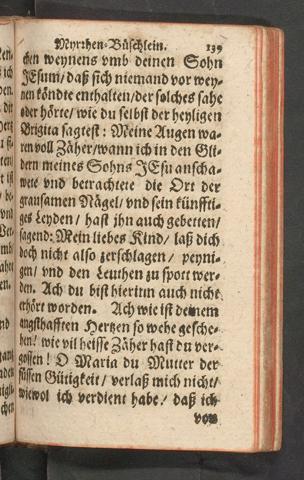 Myrrhen-Büschlein. 139
chen weynens vmb deinen Sohn
JEsum/ daß sich niemand vor wey-
nen köndte enthalten/ der solches sahe
oder hörte/ wie du selbst der heyligen
Brigita sagtest: Meine Augen wa-
ren voll Zäher/ wann ich in den Gli-
dern meines Sohns JEsu anscha-
wete vnd betrachtete die Ort der
grausamen Nägel/ vnd sein künffti-
ges Leyden/ hast jhn auch gebetten/
sagend: Mein liebes Kind/ laß dich
doch nicht also zerschlagen/ peyni-
gen/ vnd den Leuthen zu spott wer-
den. Ach du bist hierinn auch nicht
erhört worden. Ach wie ist deinem
angsthafften Hertzen so wehe gesche-
hen! wie vil heisse Zäher hast du ver-
gossen! O Maria du Mutter der
süssen Gütigkeit/ verlaß mich nicht/
wiewol ich verdient habe/ daß ich
von